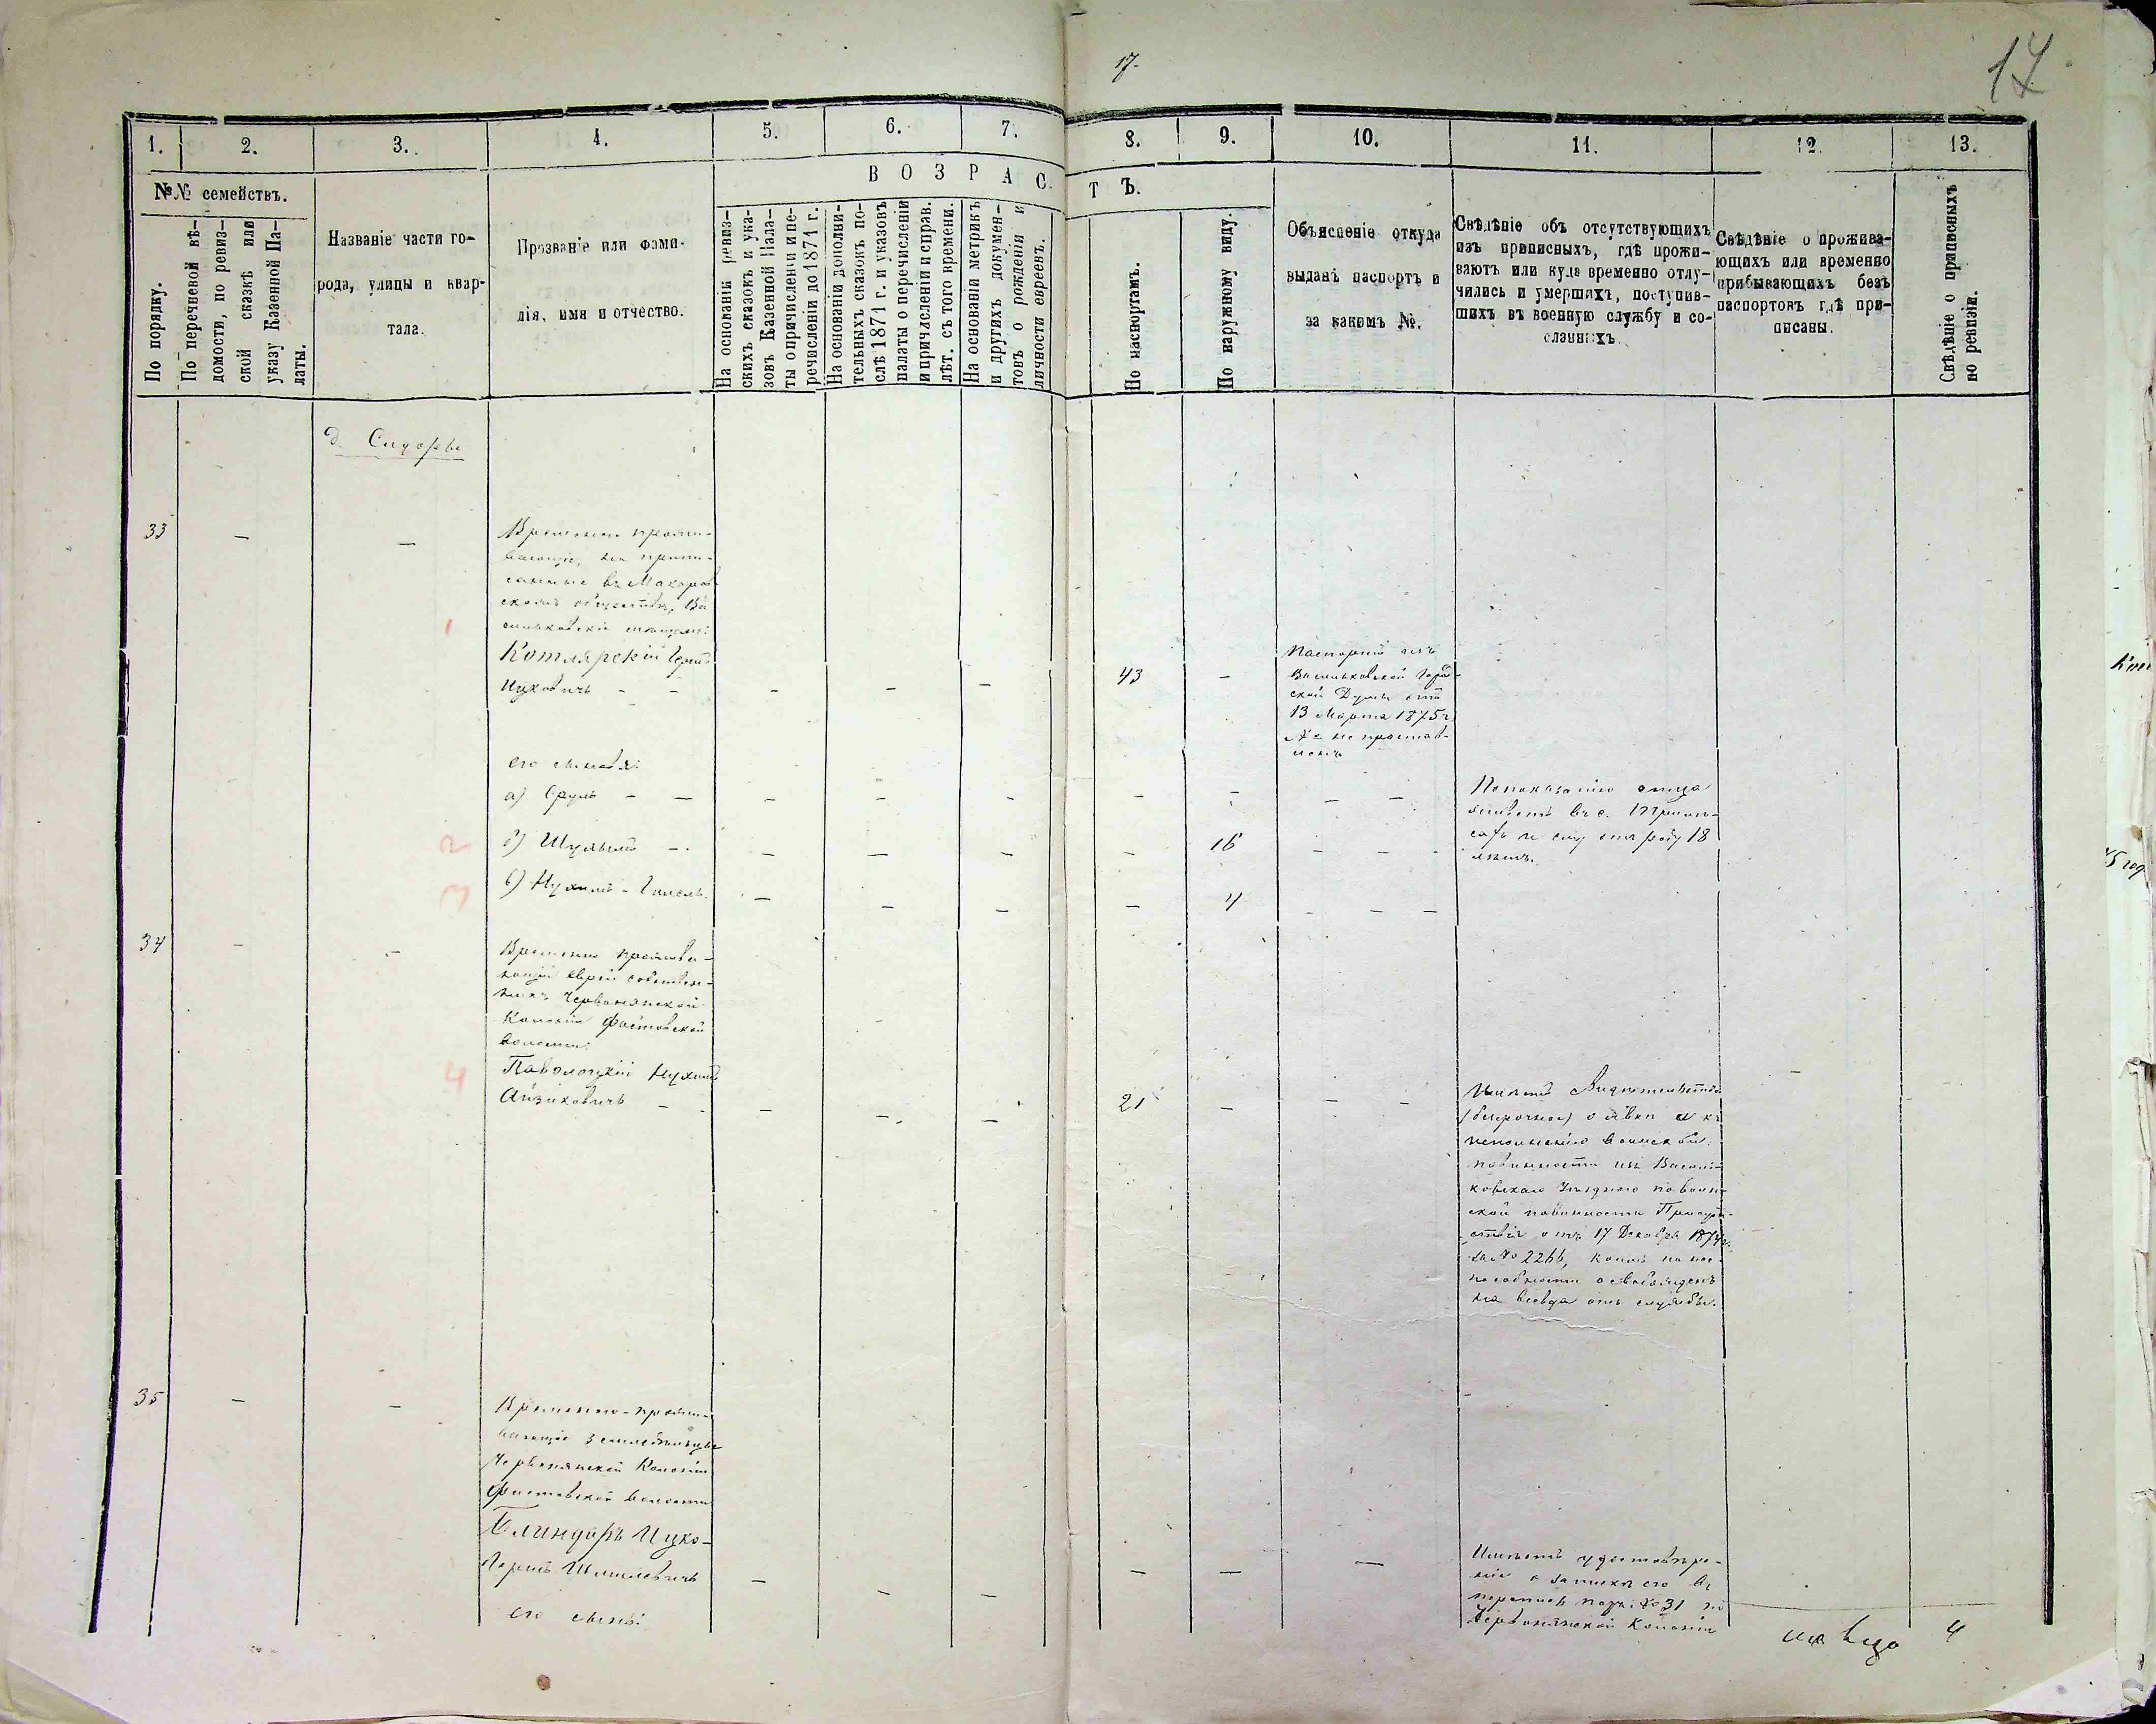 17.
17
1.
2.
3.
4.
5.
6.
7.
8.
9.
10.
11.
12.
13.
№№ семействъ.
ВОЗРАС
ТЪ.
По порядку.
По перечневой вѣ-
домости, по ревиз-
ской сказкѣ или
указу Казенной Па-
латы.
Названіе части го-
рода, улицы и квар-
тала.
Прозваніе или фами-
лія, имя и отчество.
На основаніи ревиз-
скихъ сказокъ и ука-
зовъ Казенной Пала-
ты о причисленіи и пе-
речисленіи до 1871 г.
На основаніи дополни-
тельныхъ сказокъ по-
слѣ 1871 г. и указовъ
палаты о перечисленіи
и причисленіи и справ.
лѣт. съ того времени.
На основаніи метрикъ
и другихъ докумен-
товъ о рожденіи и
личности евреевъ.
По паспортамъ.
По наружному виду.
Объясненіе откуда
выданъ паспортъ и
за какимъ №.
Свѣдѣніе объ отсутствующихъ
изъ приписныхъ, гдѣ прожи-
ваютъ или куда временно отлу-
чились и умершихъ, поступив-
шихъ въ военную службу и со-
сланныхъ.
Свѣдѣніе о прожива-
ющихъ или временно
прибывающихъ безъ
паспортовъ гдѣ при-
писаны.
Свѣдѣніе о приписныхъ
по ревизіи.
д. Сидоры
33 — —
Временно прожи-
вающіе, не припи-
санные въ Макаров-
скомъ обществѣ, Ва-
сильковскіе мѣщане:
1
Котлярскій Гершъ
Ицковичъ — — — — — 43 —
Паспортъ изъ
Васильковской Город-
ской Думы отъ
13 Марта 1875 г.
№ не простав-
ленъ
его сыновья:
а) Сруль — — — — — — — — —
По показанію отца
живетъ въ с.
и ему отъ роду 18
лѣтъ.
2 б) Шулымъ — — — — — 16 — — —
3 в) Нухимъ-Гисель — — — — 4 — — —
34 — —
Временно прожива-
ющій еврей собствен-
никъ Червонянской
Колоніи Фастовской
волости:
4 Паволоцкій Нухимъ
Айзиковичъ — — — — 21 — — —
Имѣетъ Свидѣтельство
(безсрочное) о явкѣ къ
исполненію воинской
повинности изъ Василь-
ковскаго Уѣзднаго по воин-
ской повинности Присут-
ствія отъ 17 Декабря 1874 г.
за № 2266, коимъ по нес-
пособности освобожденъ
на всегда отъ службы.
35 — —
Временно-прожи-
вающіе земледѣльцы
Червонянской Колоніи
Фастовской волости
Блиндеръ Ицко-
Гершъ Шмилевичъ — — — — — —
его сынъ:
Имѣетъ удостовѣре-
ніе о запискѣ его въ
перепись подъ № 31 по
Червонянской Колоніи
4